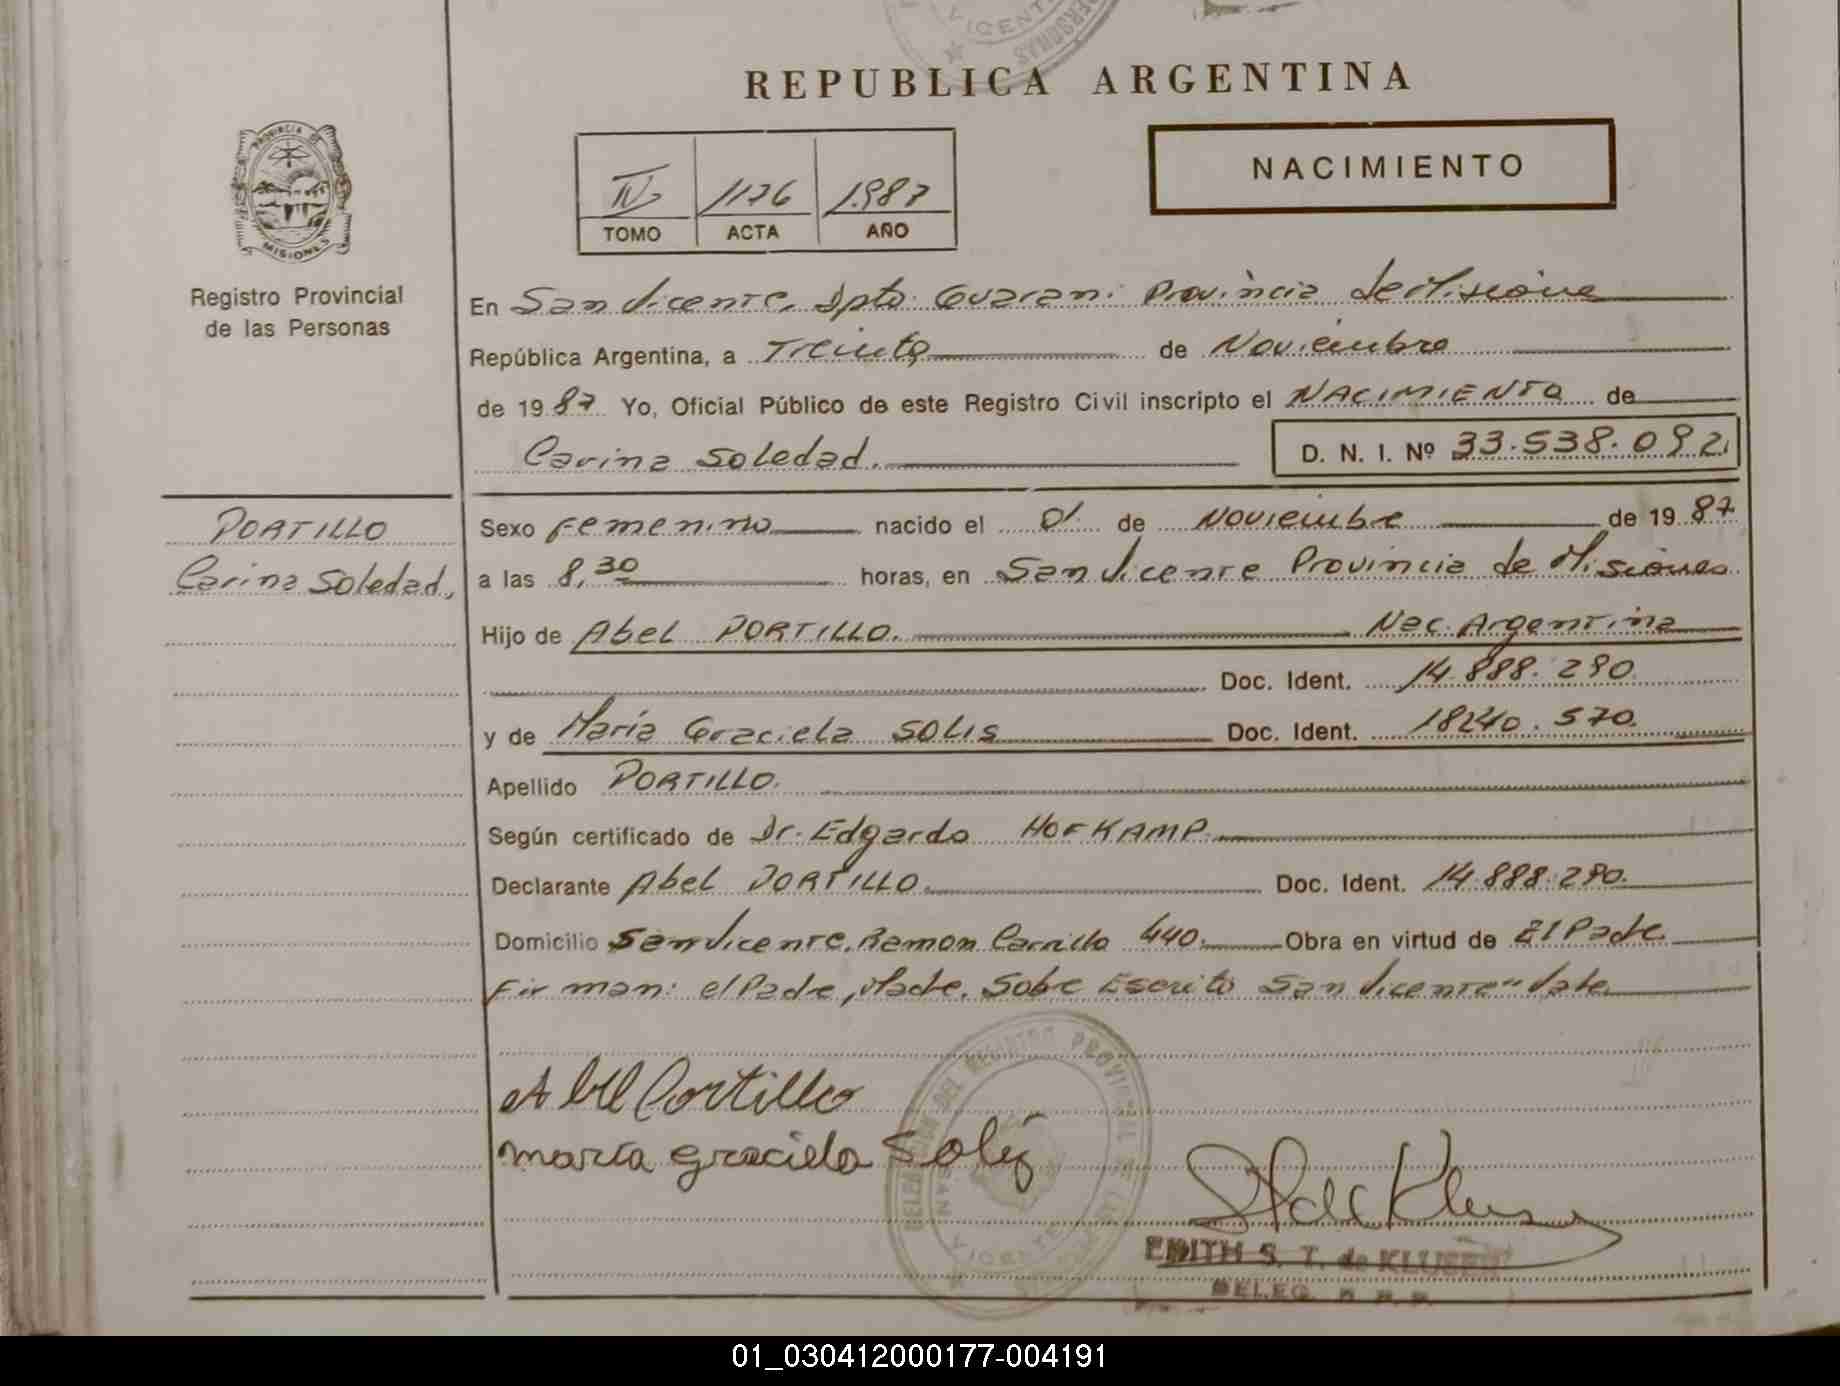 REPUBLICA ARGENTINA
PROVINCIA DE
MISIONES
Registro Provincial
de las Personas
IV 1176 1.987
TOMO ACTA AÑO
NACIMIENTO
En San Vicente, Dpto. Guarani Provincia de Misione
República Argentina, a Treinta de Noviembre
de 1987 Yo, Oficial Público de este Registro Civil inscripto el NACIMIENTO de
Carina Soledad. D. N. I. Nº 33.538.092
PORTILLO
Carina Soledad,
Sexo Femenino nacido el 01 de Noviembre de 1987
a las 8,30 horas, en San Vicente Provincia de Misiones
Hijo de Abel PORTILLO. Nac. Argentina
Doc. Ident. 14.888.290
y de María Graciela SOLIS Doc. Ident. 18240.570.
Apellido PORTILLO.
Según certificado de Dr. Edgardo HOFKAMP.
Declarante Abel PORTILLO. Doc. Ident. 14.888.290.
Domicilio San Vicente, Ramon Carrillo 440. Obra en virtud de El Padre
Firman: el Padre, Madre. Sobre Escrito San Vicente" Vale.
Abel Portillo
maría graciela Solis
DELEGACION DEL REGISTRO PROVINCIAL DE LAS PERSONAS
SAN VICENTE
EDITH S. T. de KLUSEN
DELEG. R. P. P.
01_030412000177-004191